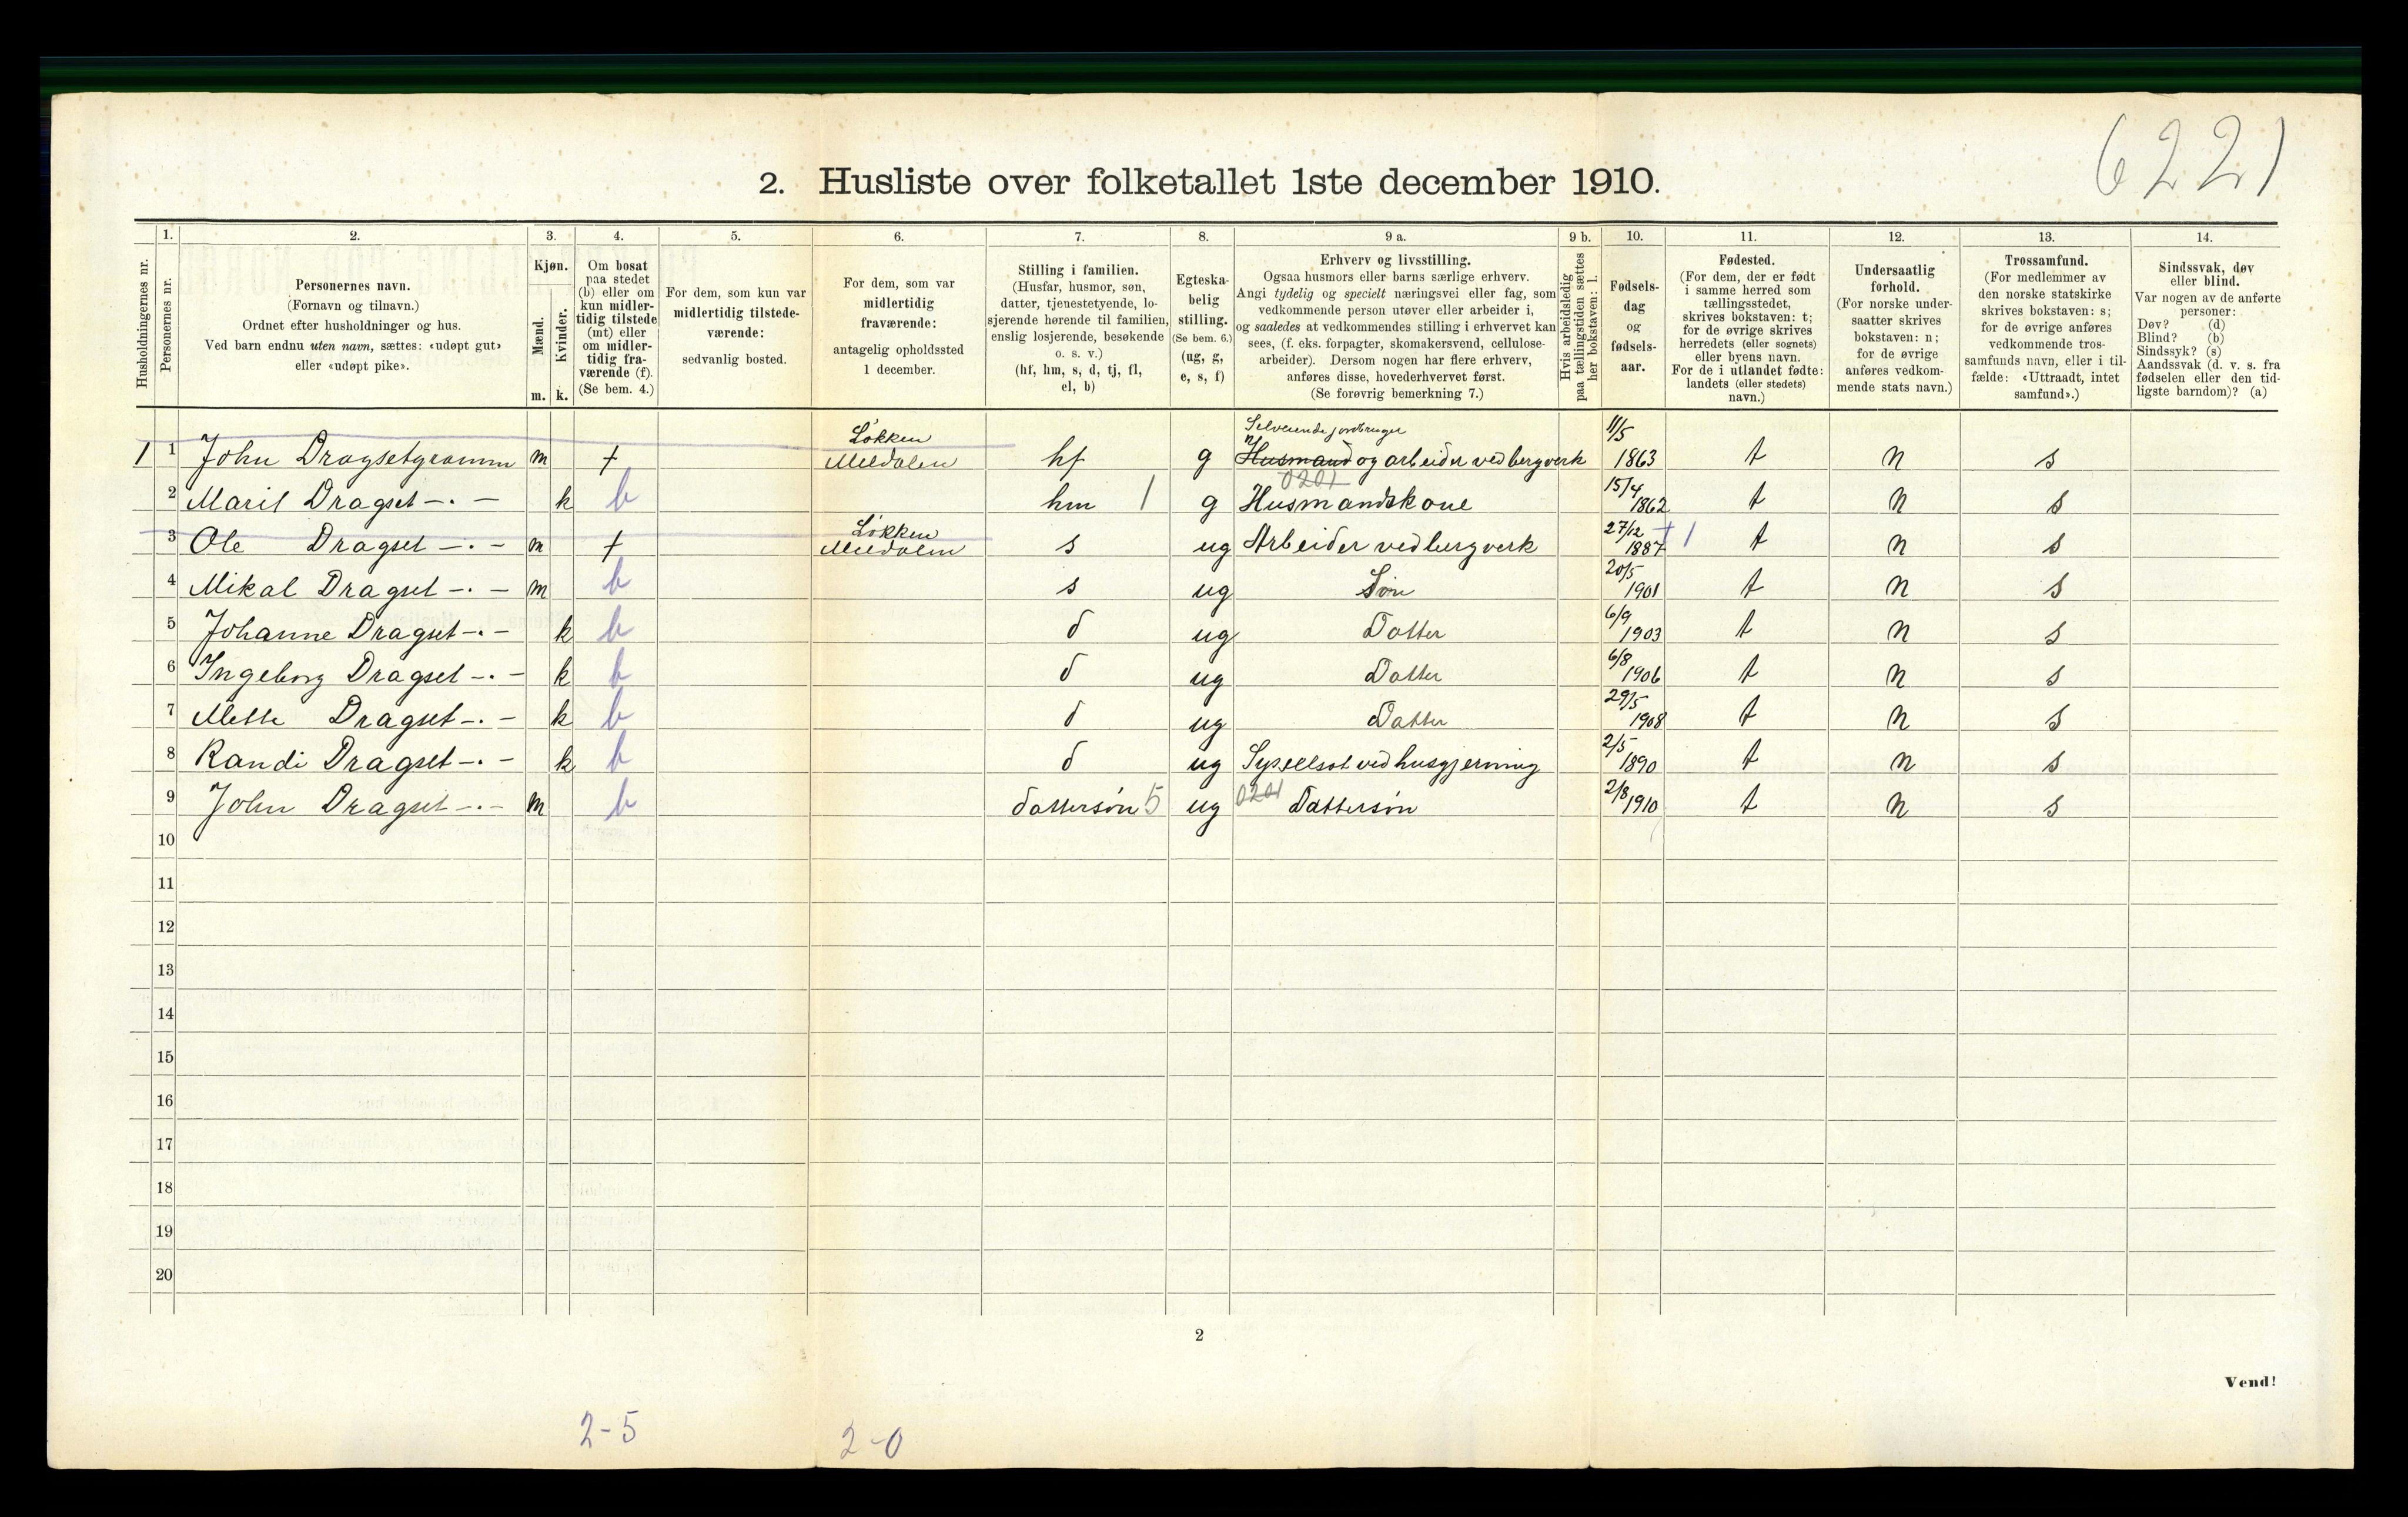 6221
2. Husliste over folketallet 1ste december 1910.
1. 2. 3. 4. 5. 6. 7. 8. 9 a. 9 b. 10. 11. 12. 13. 14.
Husholdningernes nr.
Personernes nr.
Personernes navn.
(Fornavn og tilnavn.)
Ordnet efter husholdninger og hus.
Ved barn endnu uten navn, sættes: «udøpt gut»
eller «udøpt pike».
Kjøn.
Mænd.
Kvinder.
m. k.
Om bosat
paa stedet
(b) eller om
kun midler-
tidig tilstede
(mt) eller
om midler-
tidig fra-
værende (f).
(Se bem. 4.)
For dem, som kun var
midlertidig tilstede-
værende:
sedvanlig bosted.
For dem, som var
midlertidig
fraværende:
antagelig opholdssted
1 december.
Stilling i familien.
(Husfar, husmor, søn,
datter, tjenestetyende, lo-
sjerende hørende til familien,
enslig losjerende, besøkende
o. s. v.)
(hf, hm, s, d, tj, fl,
el, b)
Egteska-
belig
stilling.
(Se bem. 6.)
(ug, g,
e, s, f)
Erhverv og livsstilling.
Ogsaa husmors eller barns særlige erhverv.
Angi tydelig og specielt næringsvei eller fag, som
vedkommende person utøver eller arbeider i,
og saaledes at vedkommendes stilling i erhvervet kan
sees, (f. eks. forpagter, skomakersvend, cellulose-
arbeider). Dersom nogen har flere erhverv,
anføres disse, hovederhvervet først.
(Se forøvrig bemerkning 7.)
Hvis arbeidsledig
paa tællingstiden sættes
her bokstaven: l.
Fødsels-
dag
og
fødsels-
aar.
Fødested.
(For dem, der er født
i samme herred som
tællingsstedet,
skrives bokstaven: t;
for de øvrige skrives
herredets (eller sognets)
eller byens navn.
For de i utlandet fødte:
landets (eller stedets)
navn.)
Undersaatlig
forhold.
(For norske under-
saatter skrives
bokstaven: n;
for de øvrige
anføres vedkom-
mende stats navn.)
Trossamfund.
(For medlemmer av
den norske statskirke
skrives bokstaven: s;
for de øvrige anføres
vedkommende tros-
samfunds navn, eller i til-
fælde: «Uttraadt, intet
samfund».)
Sindssvak, døv
eller blind.
Var nogen av de anførte
personer:
Døv? (d)
Blind? (b)
Sindssyk? (s)
Aandssvak (d. v. s. fra
fødselen eller den tid-
ligste barndom)? (a)
Løkken Selveiende jordbruger 11/5
1 1 John Dragsetgramm m f Meldalen hf g Husmand og arbeider ved bergverk 1863 t n s
0201
2 Marit Dragset -.- k b hm 1 g Husmandskone 15/4 1862 t n s
Løkken
3 Ole Dragset -.- m f Meldalen s ug Arbeider ved bergverk 27/12 1887 1 t n s
4 Mikal Dragset -.- m b s ug Søn 20/5 1901 t n s
5 Johanne Dragset -.- k b d ug Datter 6/9 1903 t n s
6 Ingeborg Dragset -.- k b d ug Datter 6/8 1906 t n s
7 Mette Dragset -.- k b d ug Datter 29/5 1908 t n s
8 Randi Dragset -.- k b d ug Sysselsat ved husgjerning 2/5 1890 t n s
9 John Dragset -.- m b dattersøn 5 ug 0201 Dattersøn 2/8 1910 t n s
10
11
12
13
14
15
16
17
18
19
20
2
Vend!
2-5
2-0